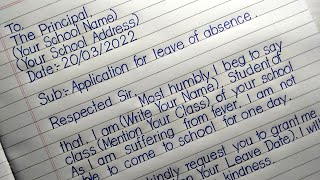 To,
The Principal,
(Your School Name)
(Your School Address)
Date:- 20/03/2022
Sub:- Application for leave of absence.
Respected Sir,
Most humbly I beg to say
that I am (Write Your Name), Student of
class (Mention Your Class) of your school
As I am suffering from fever. I am not
able to come to school for one day.
kindly request you to grant me
on Your Leave Date). I will
kindness.